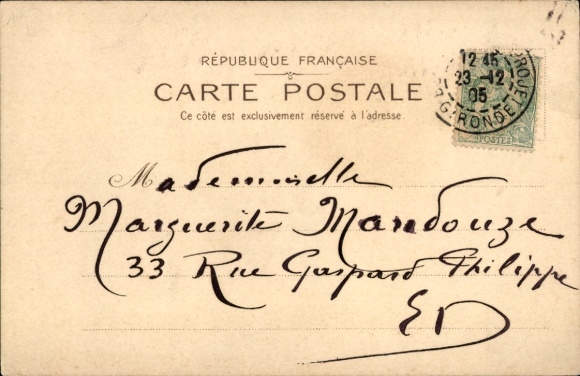 RÉPUBLIQUE FRANÇAISE
CARTE POSTALE
Ce côté est exclusivement réservé à l'adresse.
12 45
23 -12
05
GIRONDE
POSTES
Mademoiselle
Marguerite Mandouze
33 Rue Gaspard Philippe
EV